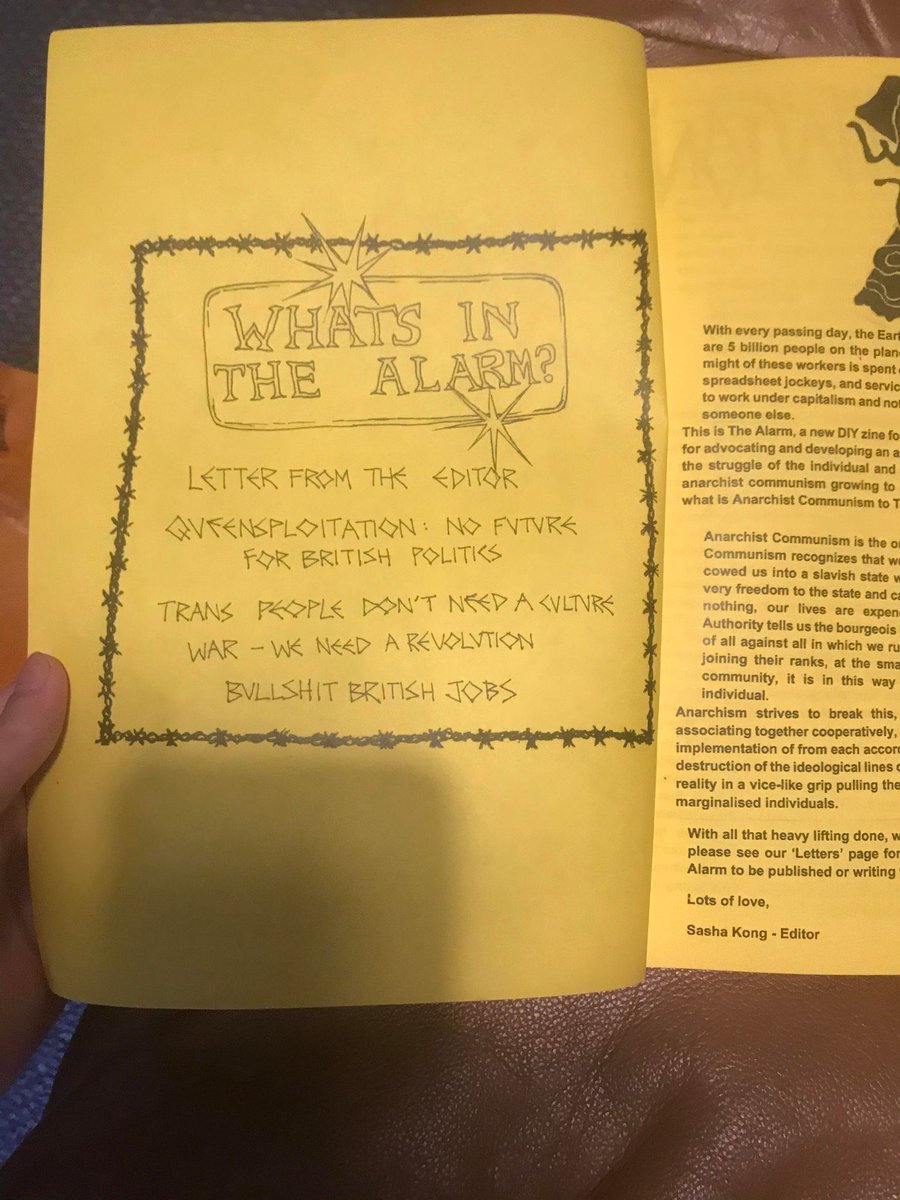 WHATS IN
THE ALARM?
LETTER FROM THE EDITOR
QVEENSPLOITATION: NO FVTVRE
FOR BRITISH POLITICS
TRANS PEOPLE DON'T NEED A CVLTVRE
WAR - WE NEED A REVOLVTION
BVLLSHIT BRITISH JOBS
With every passing day, the Eart
are 5 billion people on the plan
might of these workers is spent
spreadsheet jockeys, and servic
to work under capitalism and not
someone else.
This is The Alarm, a new DIY zine fo
for advocating and developing an a
the struggle of the individual and
anarchist communism growing to
what is Anarchist Communism to T
Anarchist Communism is the o
Communism recognizes that we
cowed us into a slavish state w
very freedom to the state and ca
nothing, our lives are expen
Authority tells us the bourgeois
of all against all in which we ru
joining their ranks, at the sma
community, it is in this way
individual.
Anarchism strives to break this,
associating together cooperatively,
implementation of from each accord
destruction of the ideological lines o
reality in a vice-like grip pulling the
marginalised individuals.
With all that heavy lifting done, w
please see our 'Letters' page for
Alarm to be published or writing
Lots of love,
Sasha Kong - Editor